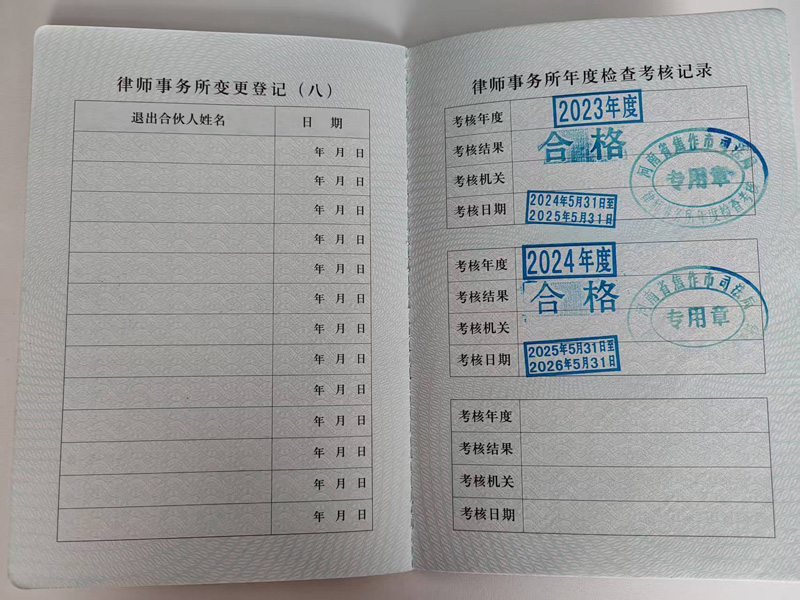 律师事务所变更登记（八）
退出合伙人姓名 日 期
年 月 日
年 月 日
年 月 日
年 月 日
年 月 日
年 月 日
年 月 日
年 月 日
年 月 日
年 月 日
年 月 日
年 月 日
年 月 日
律师事务所年度检查考核记录
考核年度 2023年度
考核结果 合格
考核机关
河南省焦作市司法局
专用章
律师事务所年度检查考核
考核日期 2024年5月31日至
2025年5月31日
考核年度 2024年度
考核结果 合格
考核机关
河南省焦作市司法局
专用章
考核日期 2025年5月31日至
2026年5月31日
考核年度
考核结果
考核机关
考核日期